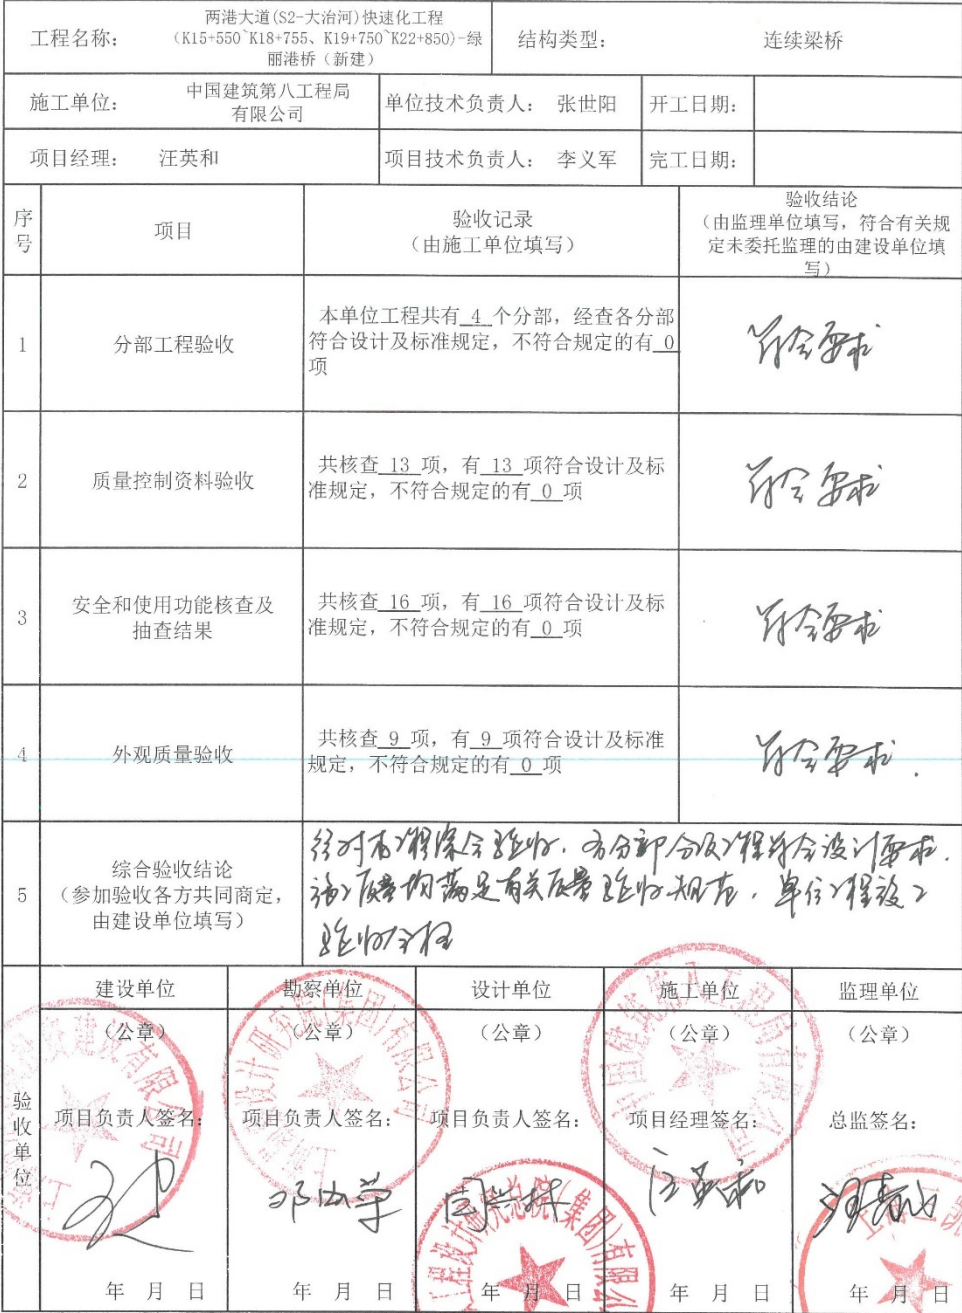 工程名称：
两港大道(S2-大治河)快速化工程
（K15+550~K18+755、K19+750~K22+850)-绿
丽港桥（新建）
结构类型：
连续梁桥
施工单位：
中国建筑第八工程局
有限公司
单位技术负责人： 张世阳
开工日期：
项目经理： 汪英和
项目技术负责人： 李义军
完工日期：
序
号
项目
验收记录
（由施工单位填写）
验收结论
（由监理单位填写，符合有关规
定未委托监理的由建设单位填
写）
1
分部工程验收
本单位工程共有 4 个分部，经查各分部
符合设计及标准规定，不符合规定的有 0
项
符合要求
2
质量控制资料验收
共核查 13 项，有 13 项符合设计及标
准规定，不符合规定的有 0 项
符合要求
3
安全和使用功能核查及
抽查结果
共核查 16 项，有 16 项符合设计及标
准规定，不符合规定的有 0 项
符合要求
4
外观质量验收
共核查 9 项，有 9 项符合设计及标准
规定，不符合规定的有 0 项
符合要求.
5
综合验收结论
（参加验收各方共同商定，
由建设单位填写）
经对本工程综合验收，各分部分项工程符合设计要求，
施工质量均满足有关质量验收规范，单位工程竣工
验收合格
验
收
单
位
建设单位
勘察单位
设计单位
施工单位
监理单位
（公章）
（公章）
（公章）
（公章）
（公章）
项目负责人签名：
项目负责人签名：
项目负责人签名：
项目经理签名：
总监签名：
汪英和
年 月 日
年 月 日
年 月 日
年 月 日
年 月 日
建设有限公司
设计研究院(集团)有限公司
工程设计研究总院(集团)有限公
中国建筑第八工程局有限公司